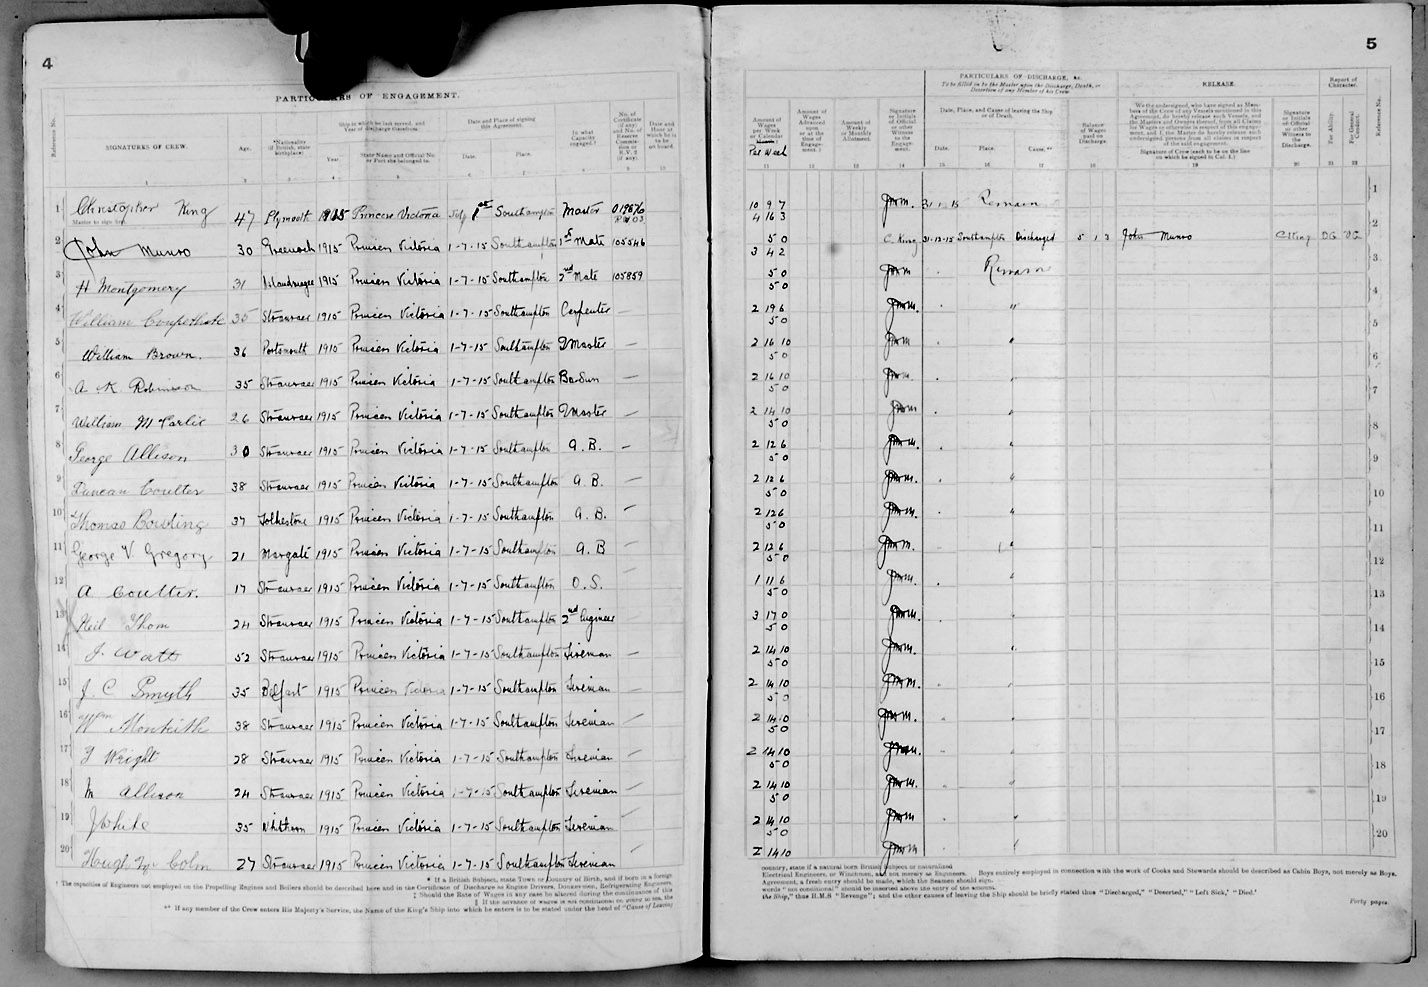 4
PARTICULARS OF ENGAGEMENT.
Reference No.
SIGNATURES OF CREW.
Age.
*Nationality (if British, state birthplace).
Ship in which he last served, and Year of discharge therefrom.
Year
State Name and Official No. or Port she belonged to.
Date and Place of signing this Agreement.
Date.
Place.
In what Capacity engaged.†
No. of Certificate (if any) and No. of Reserve Commission or R.V.2 (if any).
Date and Hour at which he is to be on board.
1 Christopher King 47 Plymouth 1915 Princess Victoria July 1st Southampton Master 019876
Master to sign first.
2 John Munro 30 Greenock 1915 Princess Victoria 1-7-15 Southampton 1st Mate 105546
3 H Montgomery 31 1915 Princess Victoria 1-7-15 Southampton 2nd Mate 105859
4 William 35 Stranraer 1915 Princess Victoria 1-7-15 Southampton Carpenter —
5 William Brown. 36 Portsmouth 1915 Princess Victoria 1-7-15 Southampton QMaster —
6 A K Robinson 35 Stranraer 1915 Princess Victoria 1-7-15 Southampton BoSun —
7 William McCarlie 26 Stranraer 1915 Princess Victoria 1-7-15 Southampton QMaster —
8 George Allison 30 Stranraer 1915 Princess Victoria 1-7-15 Southampton A.B. —
9 Duncan Coulter 38 Stranraer 1915 Princess Victoria 1-7-15 Southampton A.B. —
10 Thomas Cowling 37 Folkestone 1915 Princess Victoria 1-7-15 Southampton A.B. —
11 George V Gregory 21 Margate 1915 Princess Victoria 1-7-15 Southampton A.B —
12 A Coulter. 17 Stranraer 1915 Princess Victoria 1-7-15 Southampton O.S. —
13 Neil Thom 24 Stranraer 1915 Princess Victoria 1-7-15 Southampton 2nd Engineer
14 J. Watt 52 Stranraer 1915 Princess Victoria 1-7-15 Southampton Fireman —
15 J. C Smyth 35 Belfast 1915 Princess Victoria 1-7-15 Southampton Fireman —
16 Wm Monteith 38 Stranraer 1915 Princess Victoria 1-7-15 Southampton Fireman —
17 T Wright 28 Stranraer 1915 Princess Victoria 1-7-15 Southampton Fireman —
18 M Allison 24 Stranraer 1915 Princess Victoria 1-7-15 Southampton Fireman —
19 J White 35 Whithorn 1915 Princess Victoria 1-7-15 Southampton Fireman —
20 Hugh Mc Colm 27 Stranraer 1915 Princess Victoria 1-7-15 Southampton Fireman —
* If a British Subject, state Town or Country of Birth, and if born in a foreign
† The capacities of Engineers not employed on the Propelling Engines and Boilers should be described here and in the Certificate of Discharge as Engine Drivers, Donkeymen, Refrigerating Engineers,
‡ Should the Rate of Wages in any case be altered during the continuance of this
§ If the advance of wages is not conditional on going to sea, the
** If any member of the Crew enters His Majesty's Service, the Name of the King's Ship into which he enters is to be stated under the head of "Cause of Leaving
5
PARTICULARS OF DISCHARGE, &c.
To be filled in by the Master upon the Discharge, Death, or Desertion of any Member of his Crew
RELEASE.
Report of Character.
Amount of Wages per Week or Calendar
Per Week
Amount of Wages Advanced upon or at the time of Engagement.‡
Amount of Weekly or Monthly Allotment.
Signature or Initials of Official or other Witness to the Engagement.
Date, Place, and Cause of leaving this Ship or of Death.
Date.
Place.
Cause.**
Balance of Wages paid on Discharge.
We the undersigned, who have signed as Members of the Crew of any Vessels mentioned in this Agreement, do hereby release such Vessels, and the Masters and Owners thereof, from all Claims for Wages or otherwise in respect of this engagement, and I, the Master do hereby release such undersigned persons from all claims in respect of the said engagement.
Signature of Crew (each to be on the line on which he signed in Col. 1.)
Signature or Initials of Official or other Witness to Discharge.
For Ability.
For General Conduct.
Reference No.
10 9 7 JMM. 31 12 15 Remain 1
4 16 3
5 0 C King 31-12-15 Southampton Discharged 5 1 3 John Munro C King DG VG
3 4 2
5 0 JMM Remain 3
5 0
2 19 6 JMM. " 4
5 0
2 16 10 JMM " 5
5 0
2 16 10 JMM " 6
5 0
2 14 10 JMM " 7
5 0
2 12 6 JMM. " 8
5 0
2 12 6 JMM. " 9
5 0
2 12 6 JMM. " 10
5 0
2 12 6 JMM. " 11
5 0
1 11 6 JMM. " 12
5 0
3 17 0 JMM. " 13
5 0
2 14 10 JMM. " 14
5 0
2 14 10 JMM. " 15
5 0
2 14 0 JMM. " 16
5 0
2 14 10 JMM. " 17
5 0
2 14 10 JMM. " 18
5 0
2 14 10 JMM " 19
5 0
2 14 10 JMM " 20
country, state if a natural born British Subject or naturalized
Electrical Engineers, or Winchmen, and not merely as Engineers. Boys entirely employed in connection with the work of Cooks and Stewards should be described as Cabin Boys, not merely as Boys.
Agreement, a fresh entry should be made, which the Seamen should sign.
words "not conditional" should be inserted above the entry of the amount.
the Ship," thus H.M.S "Revenge"; and the other causes of leaving the Ship should be briefly stated thus "Discharged," "Deserted," "Left Sick," "Died."
Forty pages